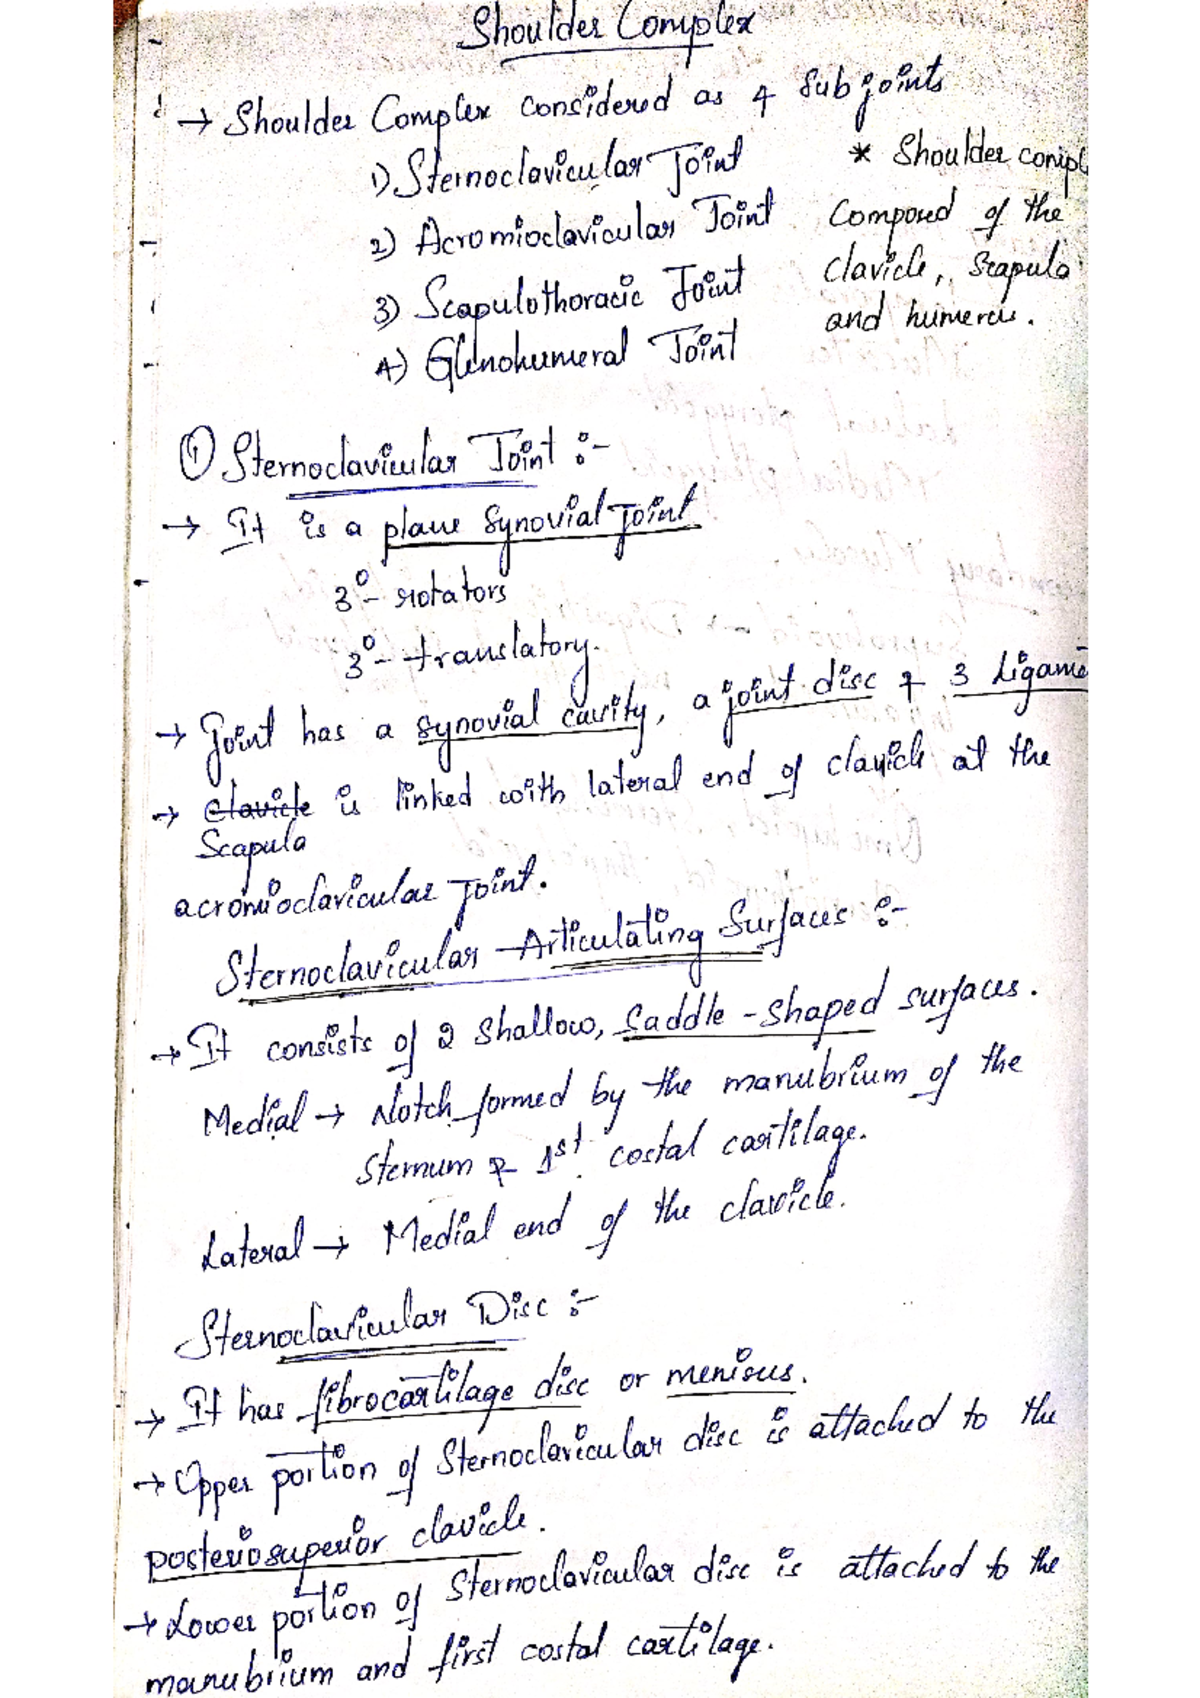 Shoulder Complex
→ Shoulder Complex considered as 4 Sub joints
1) Sternoclavicular Joint
2) Acromioclavicular Joint
3) Scapulothoracic Joint
4) Glenohumeral Joint
* Shoulder compl
Composed of the
clavicle, Scapula
and humerus.
① Sternoclavicular Joint :-
→ It is a plane Synovial Joint
3° - rotators
3° - translatory.
→ Joint has a synovial cavity, a joint disc & 3 Ligame
→ Clavicle is linked with lateral end of clavicle at the
Scapula
acromioclavicular Joint.
Sternoclavicular Articulating Surfaces :-
→ It consists of 2 shallow, Saddle-shaped surfaces.
Medial → Notch formed by the manubrium of the
Sternum & 1st costal cartilage.
Lateral → Medial end of the clavicle.
Sternoclavicular Disc :-
→ It has fibrocartilage disc or menisus.
→ Upper portion of Sternoclavicular disc is attached to the
posteriosuperior clavicle.
→ Lower portion of Sternoclavicular disc is attached to the
manubrium and first costal cartilage.